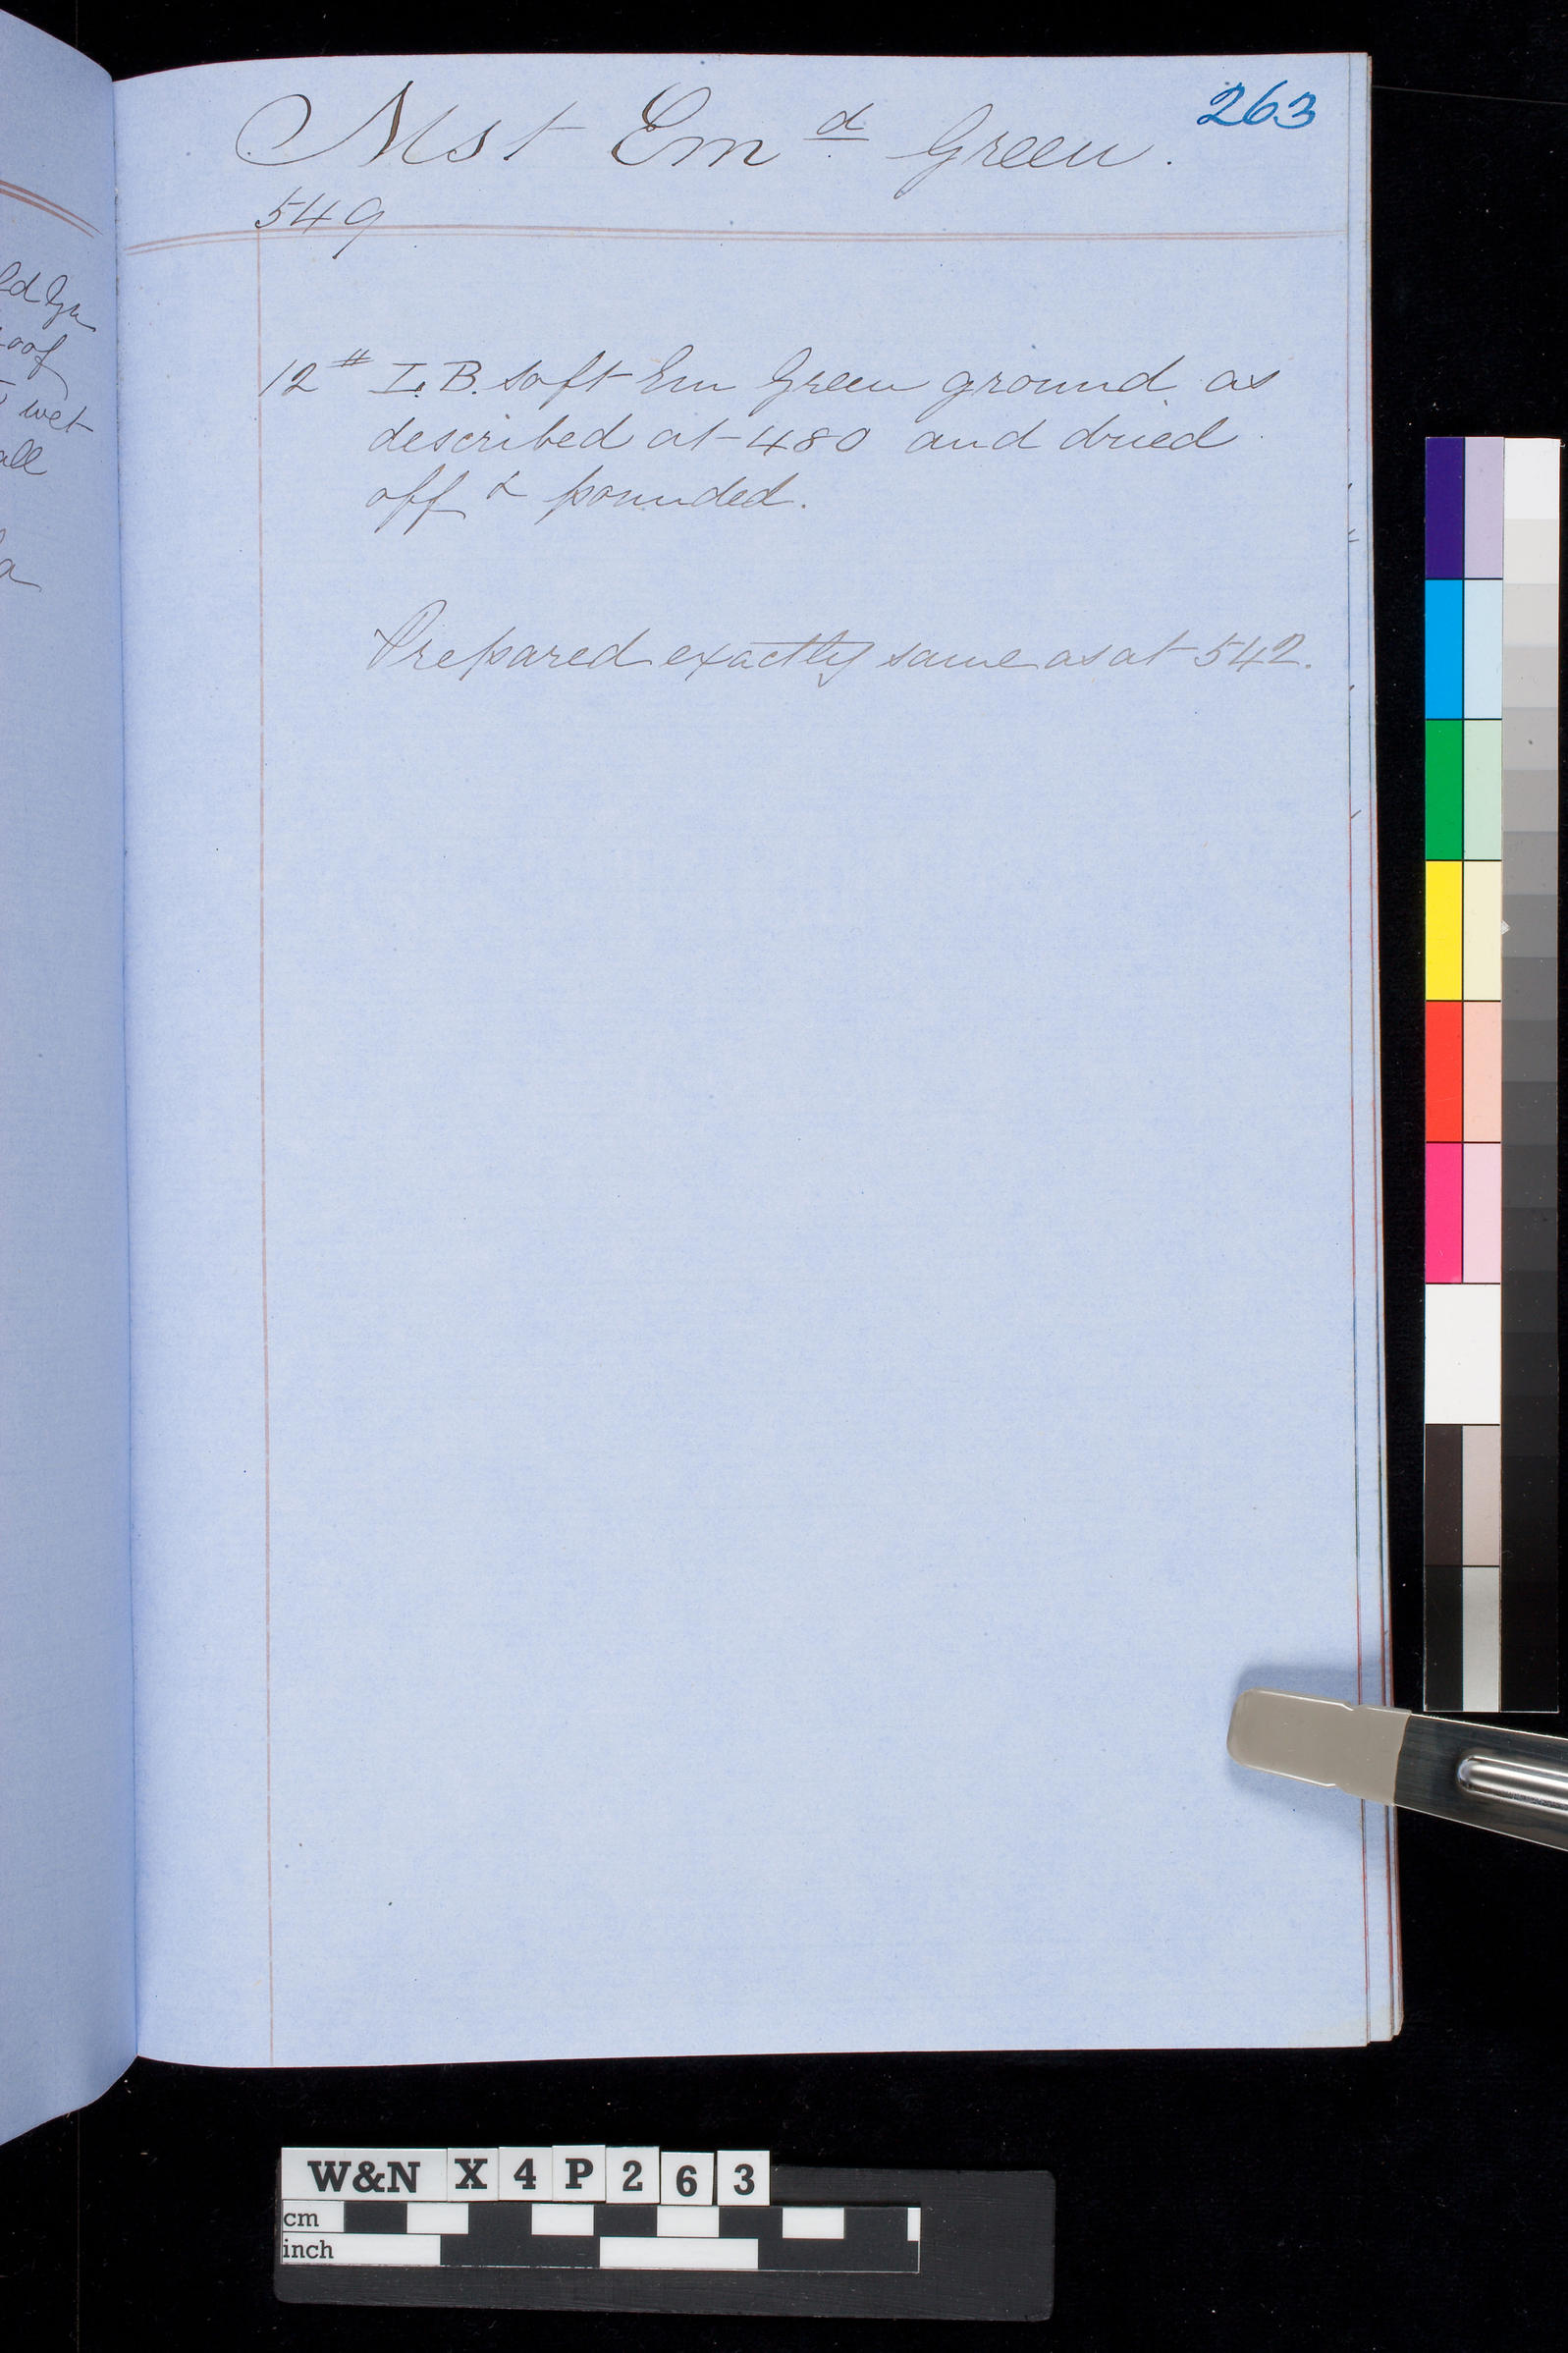 263
Mst Em d Green.
549
12 # I.B. soft Em Green ground as
described at 480 and dried
off & pounded.
Prepared exactly same as at 542.
wet
all
W&N X 4 P 2 6 3
cm
inch